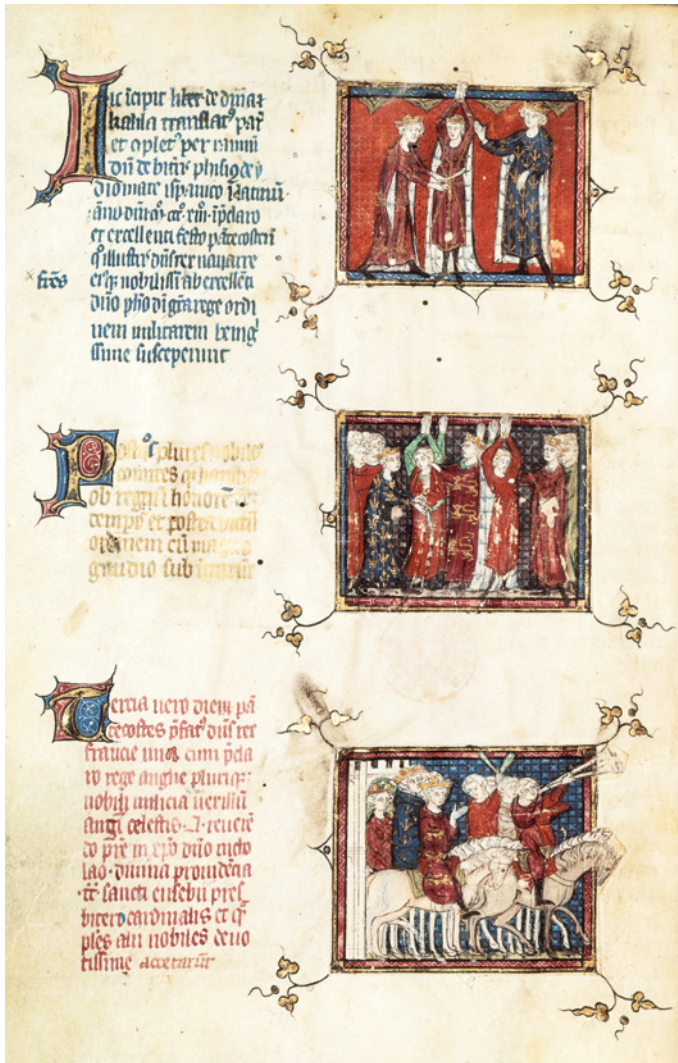 Hic īcipit liber de dyna et
kalila translat9 par
et oplet9 per raimū
dū de biterꝭ phisiq
diomate ispanico ī latinū
āno dni mº ccc xiii ī pclaro
et excellenti festo pētecostes
qº illustris dns rex nauarre
frēs
eiꝰq nobilissi ab excellēti
dño pho di gra rege ordi
nem militarem benig
ssime susceperunt
Postqº plures nobiles
comites q barones
ob regnū honorē
tempꝰ et postea
ordinem cū magno
gaudio subierunt
Tercia uero diem pē
tecostes pfat9 dns rex
francie una cum pcla
ro rege anglie pluriq
nobili milicia
celestis a reuerē
do pre in xpo dño nicho
lao diuina prouidētia
tt sancti eusebii pres
bitero cardinalis et q
ples alii nobiles deuo
tissime acceptarūt